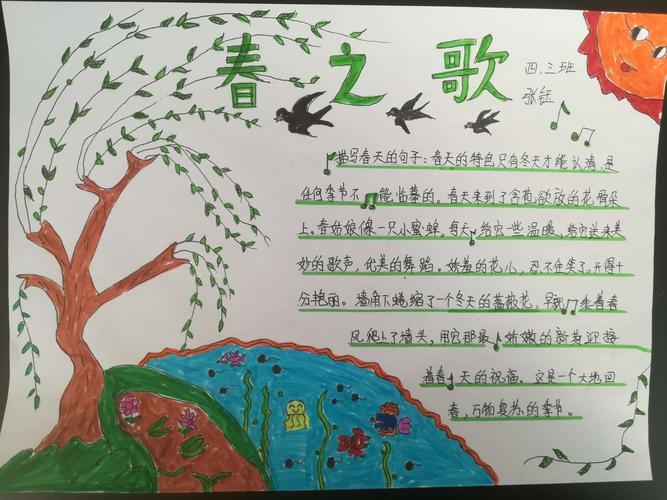 春之歌
四、三班
张钰
描写春天的句子:春天的特色只有冬天才能认清,是
任何季节不能临摹的。春天来到了含苞欲放的花骨朵
上。春姑娘像一只小蜜蜂,每天给它一些温暖,给它送来美
妙的歌声,优美的舞蹈。娇羞的花儿,忍不住笑了。开得十
分艳丽。墙角下蜷缩了一个冬天的蔷薇花,早就坐着春
风爬上了墙头,用它那最娇嫩的新芽迎接
着春天的祝福。这是一个大地回
春,万物复苏的季节。